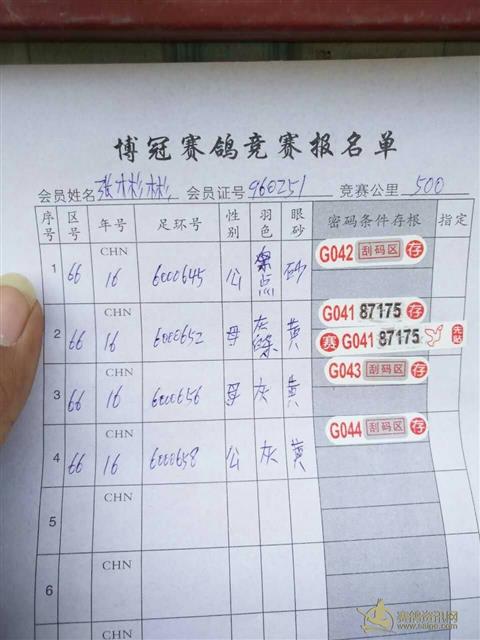 博冠赛鸽竞赛报名单
会员姓名 张彬彬 会员证号 960251 竞赛公里 500
序号 区号 年号 足环号 性别 羽色 眼砂 密码条件存根 指定
1 66 CHN 16 6000645 公 点 砂 G042 刮码区 存
G041 87175 存
2 66 CHN 16 6000652 母 灰 黄 赛 G041 87175 先贴
3 66 CHN 16 6000656 母 灰 黄 G043 刮码区 存
4 66 CHN 16 6000658 公 灰 黄 G044 刮码区 存
5 CHN
6 CHN
CHN
赛鸽资讯网
www.saige.com